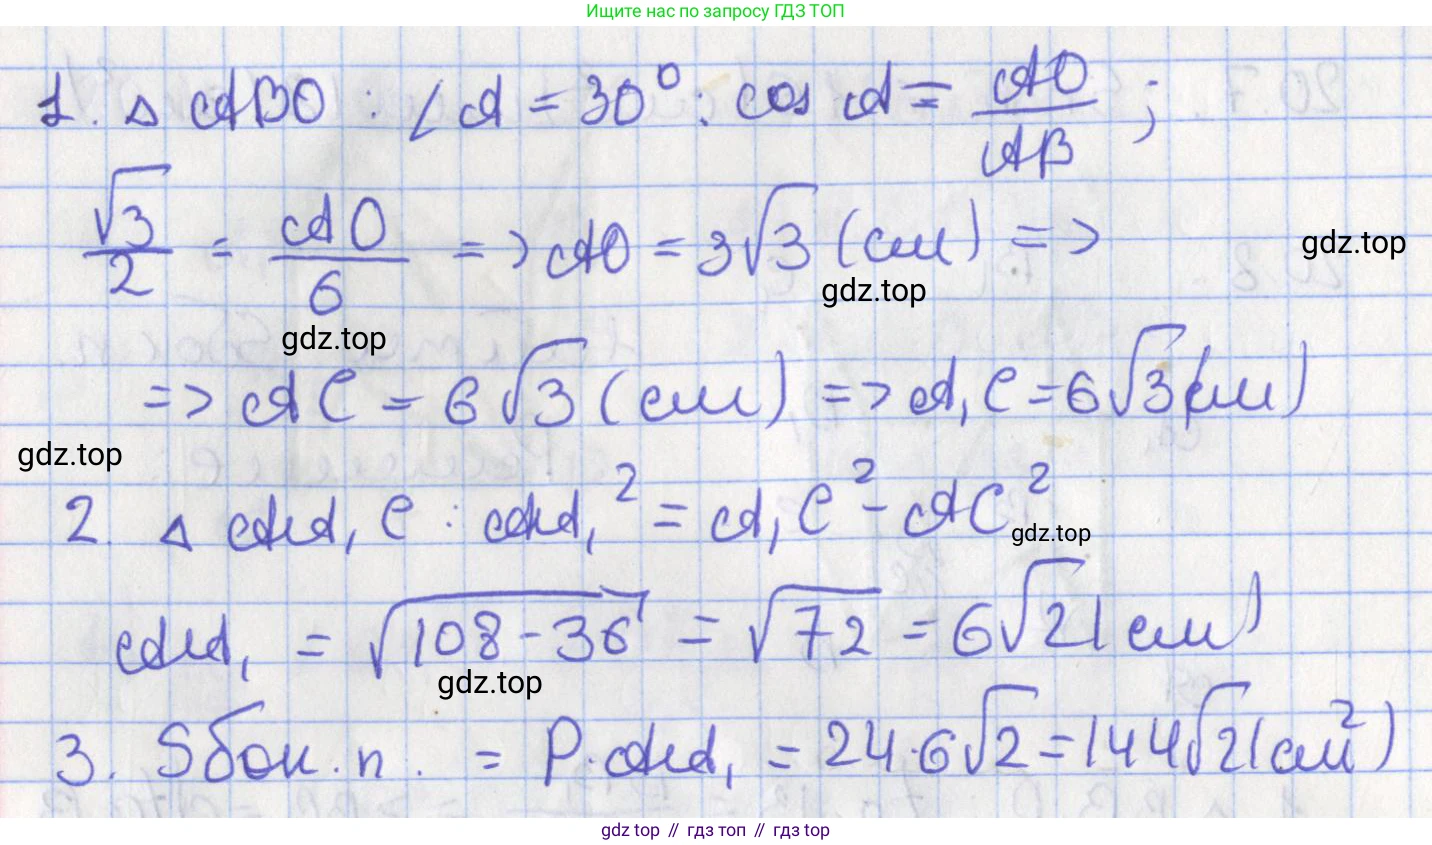 Ищите нас по запросу ГДЗ ТОП
1. △ ABO : ∠A = 30° : cos A = AO/AB ;
√3/2 = AO/6 => AO = 3√3 (см) =>
gdz.top
gdz.top
gdz.top
=> AC = 6√3 (см) => A₁C = 6√3 (см)
gdz.top
2. △ AA₁C : AA₁² = A₁C² - AC²
gdz.top
AA₁ = √(108 - 36) = √72 = 6√2 (см)
gdz.top
3. Sбок.п. = P·AA₁ = 24·6√2 = 144√2 (см²)
gdz top // гдз топ // gdz top